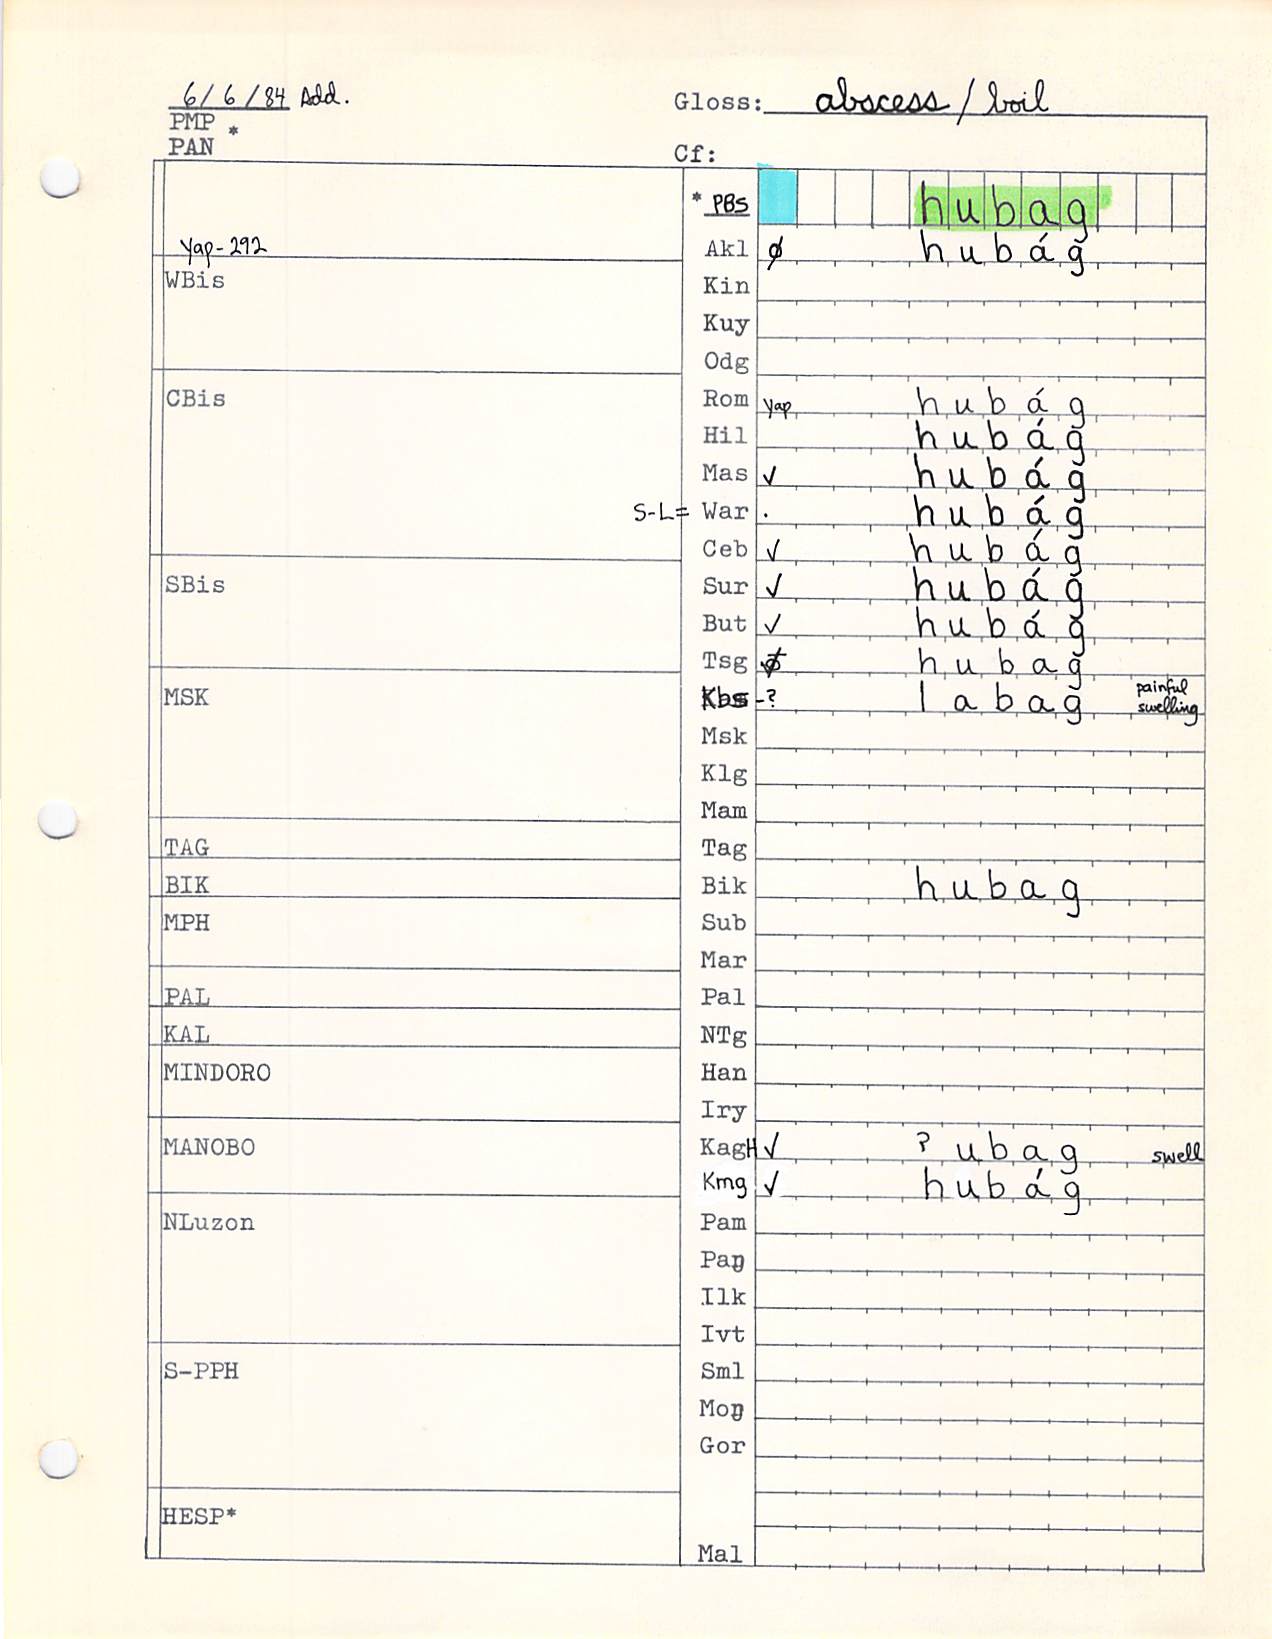 6/6/84 Add.
Gloss: abscess / boil
PMP *
PAN
Cf:
* PBs hubag
Yap-292
Akl ∅ hubáǧ
WBis
Kin
Kuy
Odg
CBis
Rom Yap hubág
Hil hubáǧ
Mas ✓ hubáǧ
S-L= War . hubáǧ
Ceb ✓ hubág
SBis
Sur ✓ hubáǧ
But ✓ hubáǧ
Tsg hubag
MSK
Kbs -? labag painful swelling
Msk
Klg
Mam
TAG
Tag
BIK
Bik hubag
MPH
Sub
Mar
PAL
Pal
KAL
NTg
MINDORO
Han
Iry
MANOBO
KagH ✓ ? ubag swell
Kmg ✓ hubág
NLuzon
Pam
Paŋ
Ilk
Ivt
S-PPH
Sml
Moŋ
Gor
HESP*
Mal